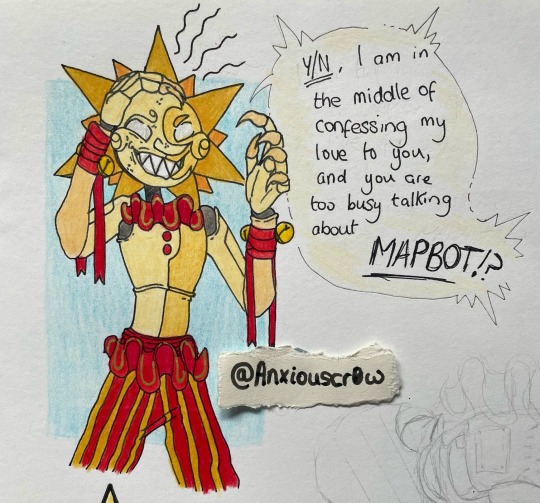 Y/N, I am in
the middle of
confessing my
love to you,
and you are
too busy talking
about
MAPBOT!?
@Anxiouscr0w